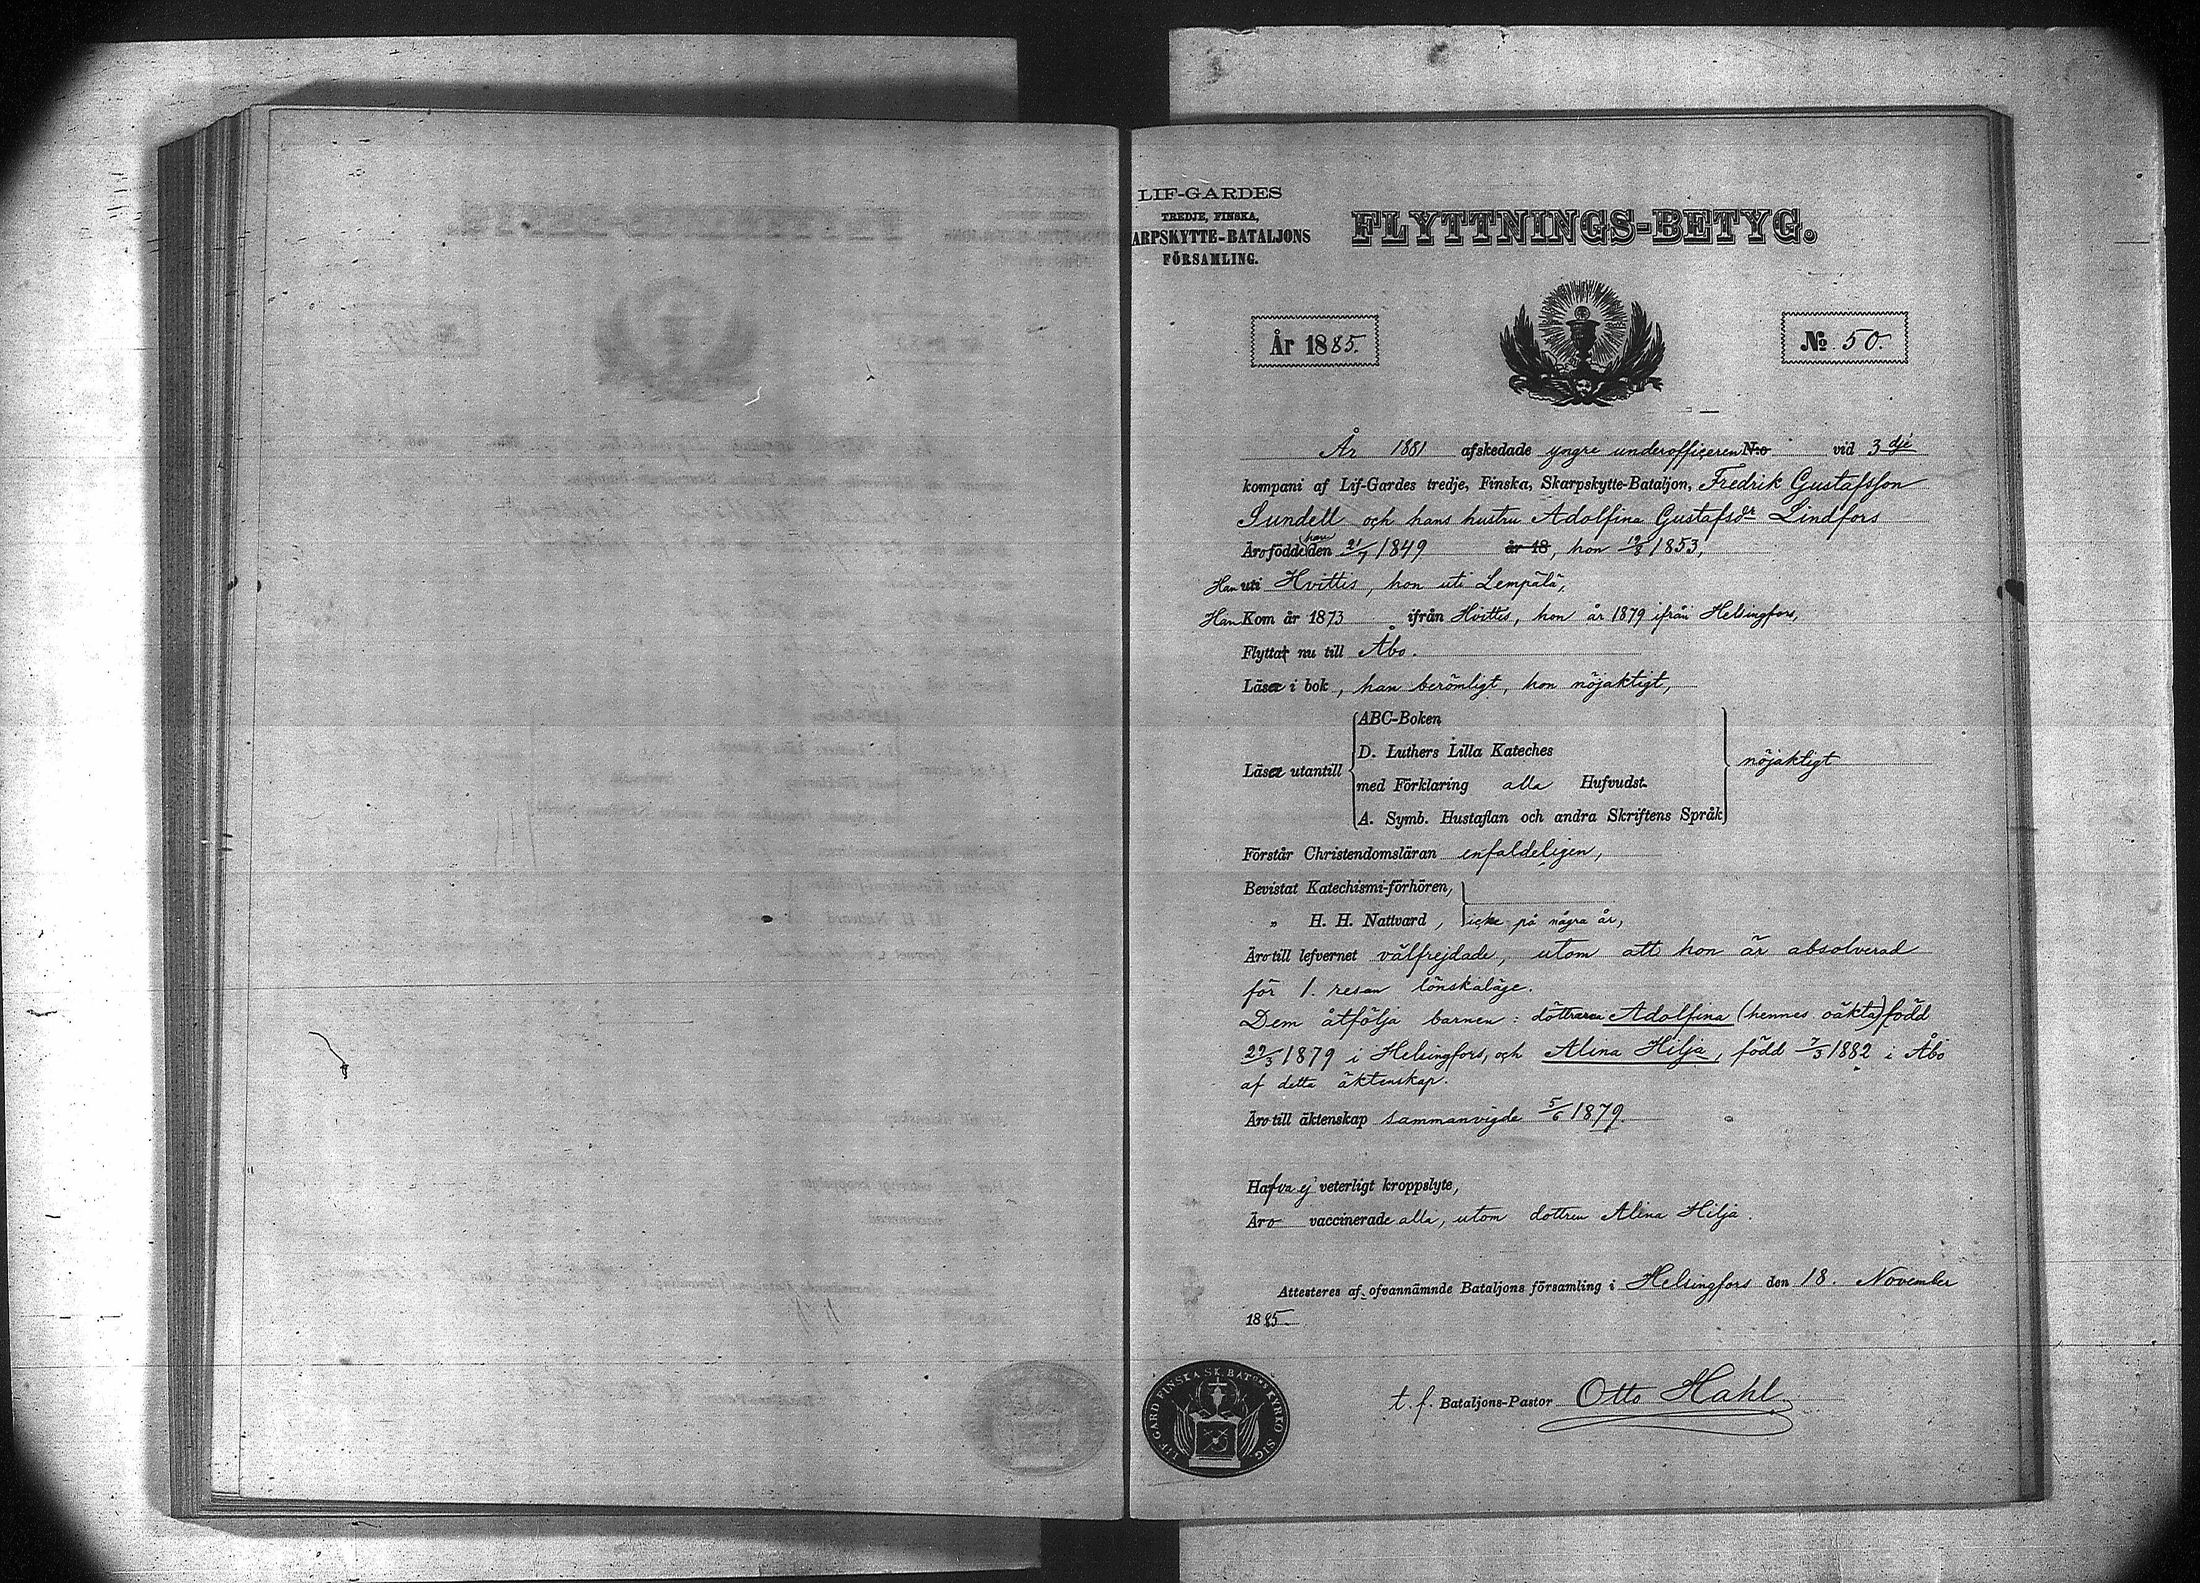 LIF-GARDES
TREDJE, FINSKA,
ARPSKYTTE-BATALJONS
FÖRSAMLING.
FLYTTNINGS-BETYG.
År 1885.
No 50.
År 1881 afskedade yngre underofficeren No vid 3 dje
kompani af Lif-Gardes tredje, Finska, Skarpskytte-Bataljon, Fredrik Gustafsson
Sundell och hans hustru Adolfina Gustafsdr Lindfors
Äro födde han den 21/7 1849 år 18, hon 19/8 1853,
Han uti Hvittis, hon uti Lempälä,
Han Kom år 1873 ifrån Hvittis, hon år 1879 ifrån Helsingfors,
Flyttat nu till Åbo.
Läser i bok, han berömligt, hon nöjaktigt,
Läser utantill
ABC-Boken
D. Luthers Lilla Kateches
med Förklaring alla Hufvudst.
A. Symb. Hustaflan och andra Skriftens Språk
nöjaktigt
Förstår Christendomsläran enfaldeligen,
Bevistat Katechismi-förhören,
„ H. H. Nattvard, icke på några år,
Äro till lefvernet välfrejdade, utom att hon är absolverad
för 1. resan lönskaläge.
Dem åtfölja barnen: döttrarna Adolfina (hennes oäkta) född
29/3 1879 i Helsingfors, och Alina Hilja, född 7/3 1882 i Åbo
af detta äktenskap.
Äro till äktenskap sammanvigde 5/6 1879.
Hafva ej veterligt kroppslyte,
Äro vaccinerade alla, utom dottren Alina Hilja.
Attesteres af ofvannämnde Bataljons församling i Helsingfors den 18. November
1885.
t. f. Bataljons-Pastor Otto Hahl.
LIF-GARD. FINSKA SK. BATns KYRKO SIG.